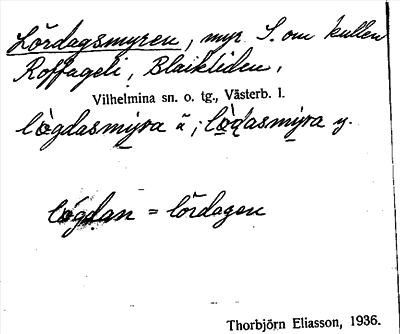 Lördagsmyren, myr S. om kullen
Roffageli, Blaikliden,
Vilhelmina sn. o. tg., Västerb. l.
lògdasmýra ä; lòg̣dasmýra y.
lógdan = lördagen
Thorbjörn Eliasson, 1936.